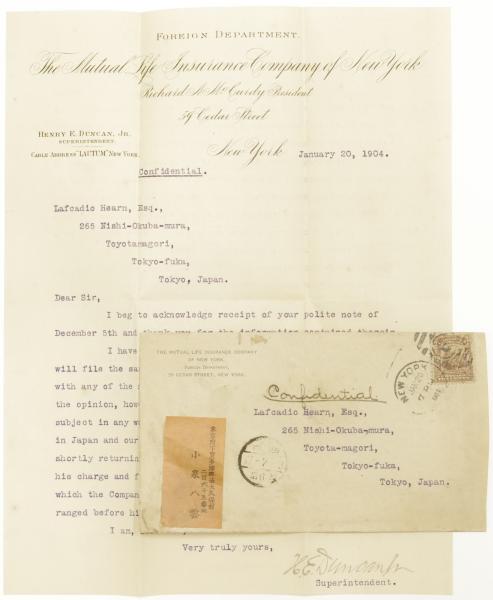 FOREIGN DEPARTMENT.
The Mutual Life Insurance Company of New York
Richard A. McCurdy President
59 Cedar Street
HENRY E. DUNCAN, JR.
SUPERINTENDENT.
CABLE ADDRESS "LACTUM" NEW YORK.
New York January 20, 1904.
Confidential.
Lafcadio Hearn, Esq.,
265 Nishi-Okuba-mura,
Toyotamagori,
Tokyo-fuka,
Tokyo, Japan.
Dear Sir,
I beg to acknowledge receipt of your polite note of
December 5th and thank you for the information contained therein.
I have
will file the sa
with any of the
the opinion, howe
subject in any wa
in Japan and our
shortly returnin
his charge and f
which the Compan
ranged before hi
I am,
Very truly yours,
H.E. Duncan Jr
Superintendent.
THE MUTUAL LIFE INSURANCE COMPANY
OF NEW YORK.
FOREIGN DEPARTMENT,
59 CEDAR STREET, NEW YORK.
NEW YORK
Confidential
Lafcadio Hearn, Esq.,
265 Nishi-Okuba-mura,
Toyota-magori,
Tokyo-fuka,
Tokyo, Japan.
小泉八雲